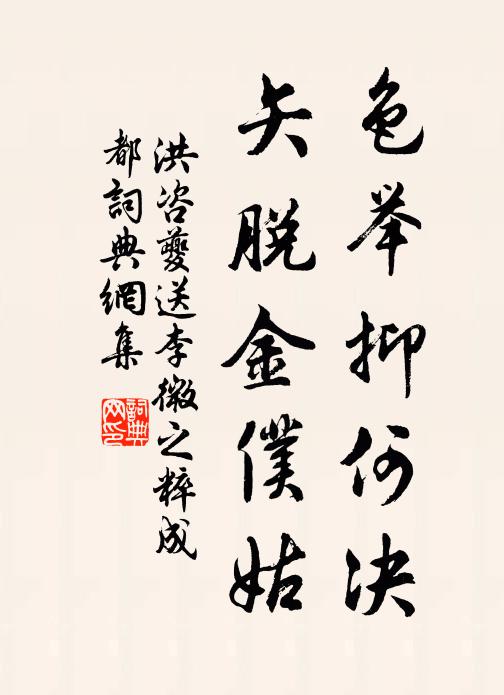 色举抑何决
矢脱金僕姑
洪咨夔送李微之粹成
都詞典網集
詞典網印